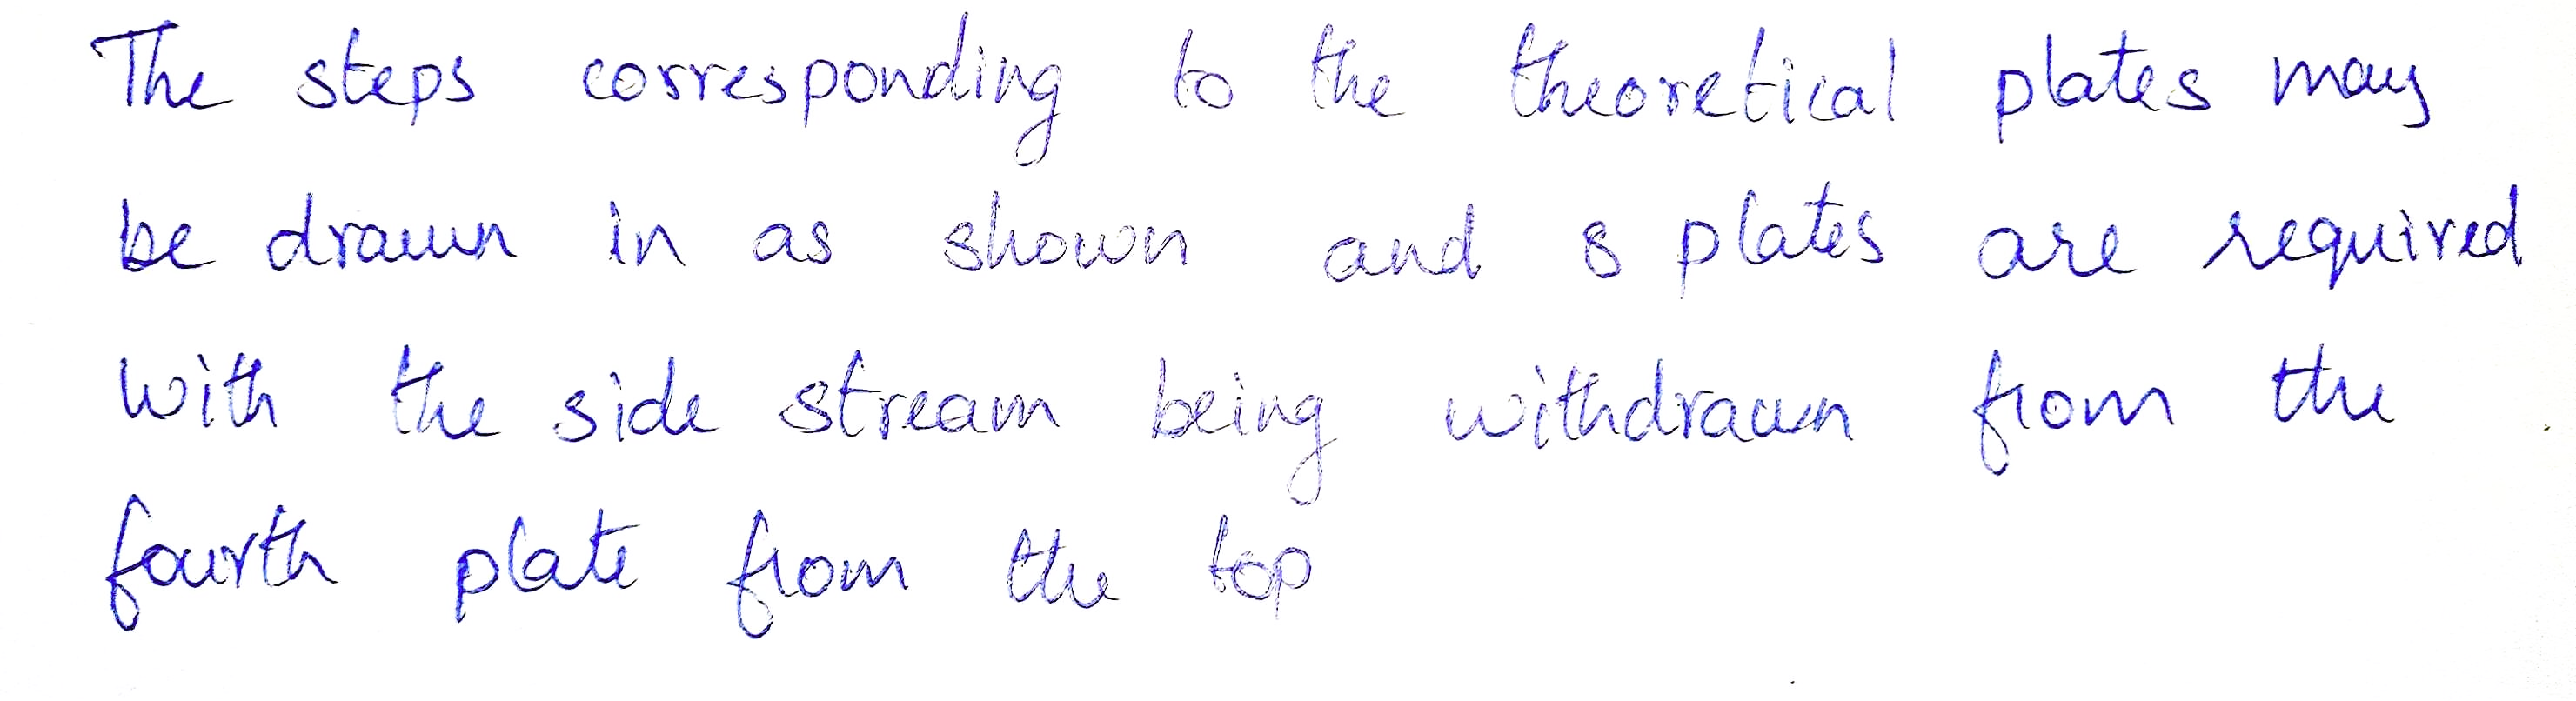 The steps corresponding to the theoretical plates may
be drawn in as shown and 8 plates are required
with the side stream being withdrawn from the
fourth plate from the top